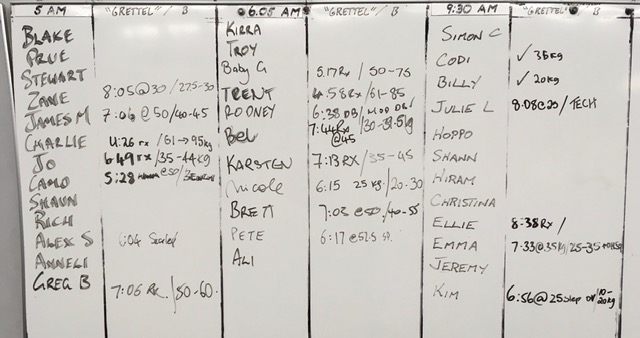 5 AM "GRETTEL" / B 6.05 AM "GRETTEL" / B 9:30 AM "GRETTEL" B
BLAKE
PRUE
STEWART
ZANE 8:05@30 / 27.5-30
JAMES M 7:06 @ 50/40-45
CHARLIE 4:26 rx /61→95kg
JO 6:49 rx /35-44kg
CAMO 5:28 @50/
SHAUN
RICH
ALEX S Scaled
ANNELI
GREG B 7:06 Rx /50-60.
KIRRA
TROY
Baby G 5.17 Rx / 50-75
TRENT 4:58 Rx /61-85
RODNEY 6:38 DB/ MOD DB/
BEL 7:44 Rx /30-39.5kg
@45
KARSTEN 7:13 RX /35-45
Nicole 6:15 25 kg /20-30
BRETT 7:03 @50 /40-55
PETE 6:17 @52.5
ALI
SIMON C
CODI ✓ 35kg
BILLY ✓ 20kg
JULIE L 8:08@25/TECH
HOPPO
SHANN
HIRAM
CHRISTINA
ELLIE 8:38 Rx /
EMMA 7:33@35kg/25-35
JEREMY
KIM 6:56@25 step ov /10-20kg